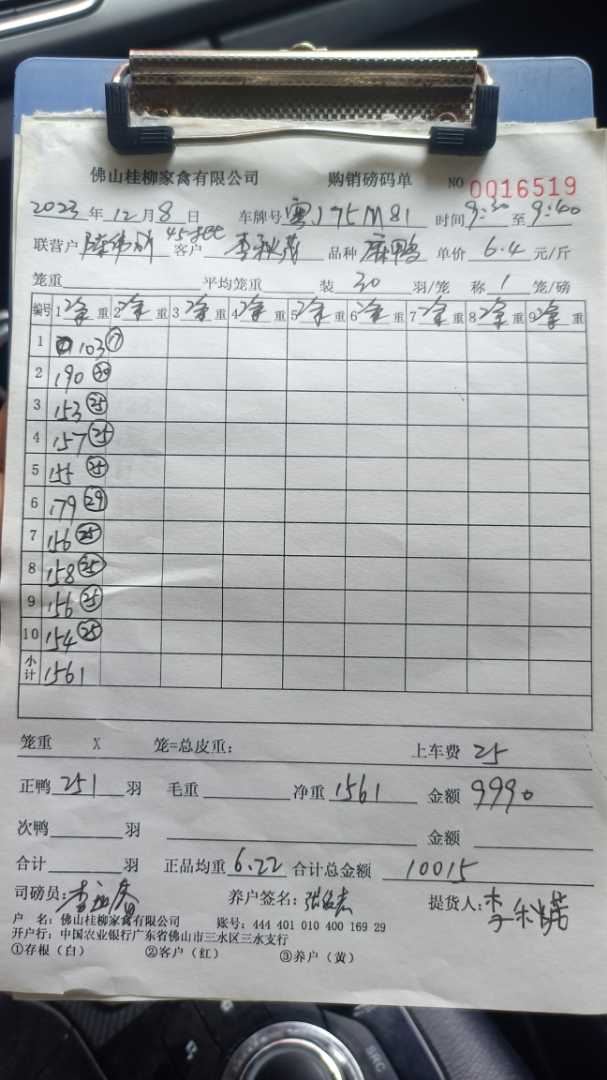 佛山桂柳家禽有限公司 购销磅码单 NO 0016519
2023年12月8日 车牌号粤J75M81 时间9:30至9:40
联营户 客户 品种麻鸭 单价6.4元/斤
笼重 平均笼重 装30羽/笼 称1笼/磅
编号 1净重 2净重 3净重 4净重 5净重 6净重 7净重 8净重 9净重
1 103 ⑰
2 190 ㉚
3 153 ㉕
4 157 ㉕
5 155 ㉕
6 179 ㉙
7 156 ㉕
8 158 ㉕
9 156 ㉕
10 154 ㉕
小计 1561
笼重 X 笼=总皮重: 上车费 25
正鸭251羽 毛重 净重1561 金额9990
次鸭 羽 金额
合计 羽 正品均重6.22 合计总金额10015
司磅员: 养户签名: 提货人:
户 名: 佛山桂柳家禽有限公司 账号: 444 401 010 400 169 29
开户行: 中国农业银行广东省佛山市三水区三水支行
①存根(白) ②客户(红) ③养户(黄)
SRC